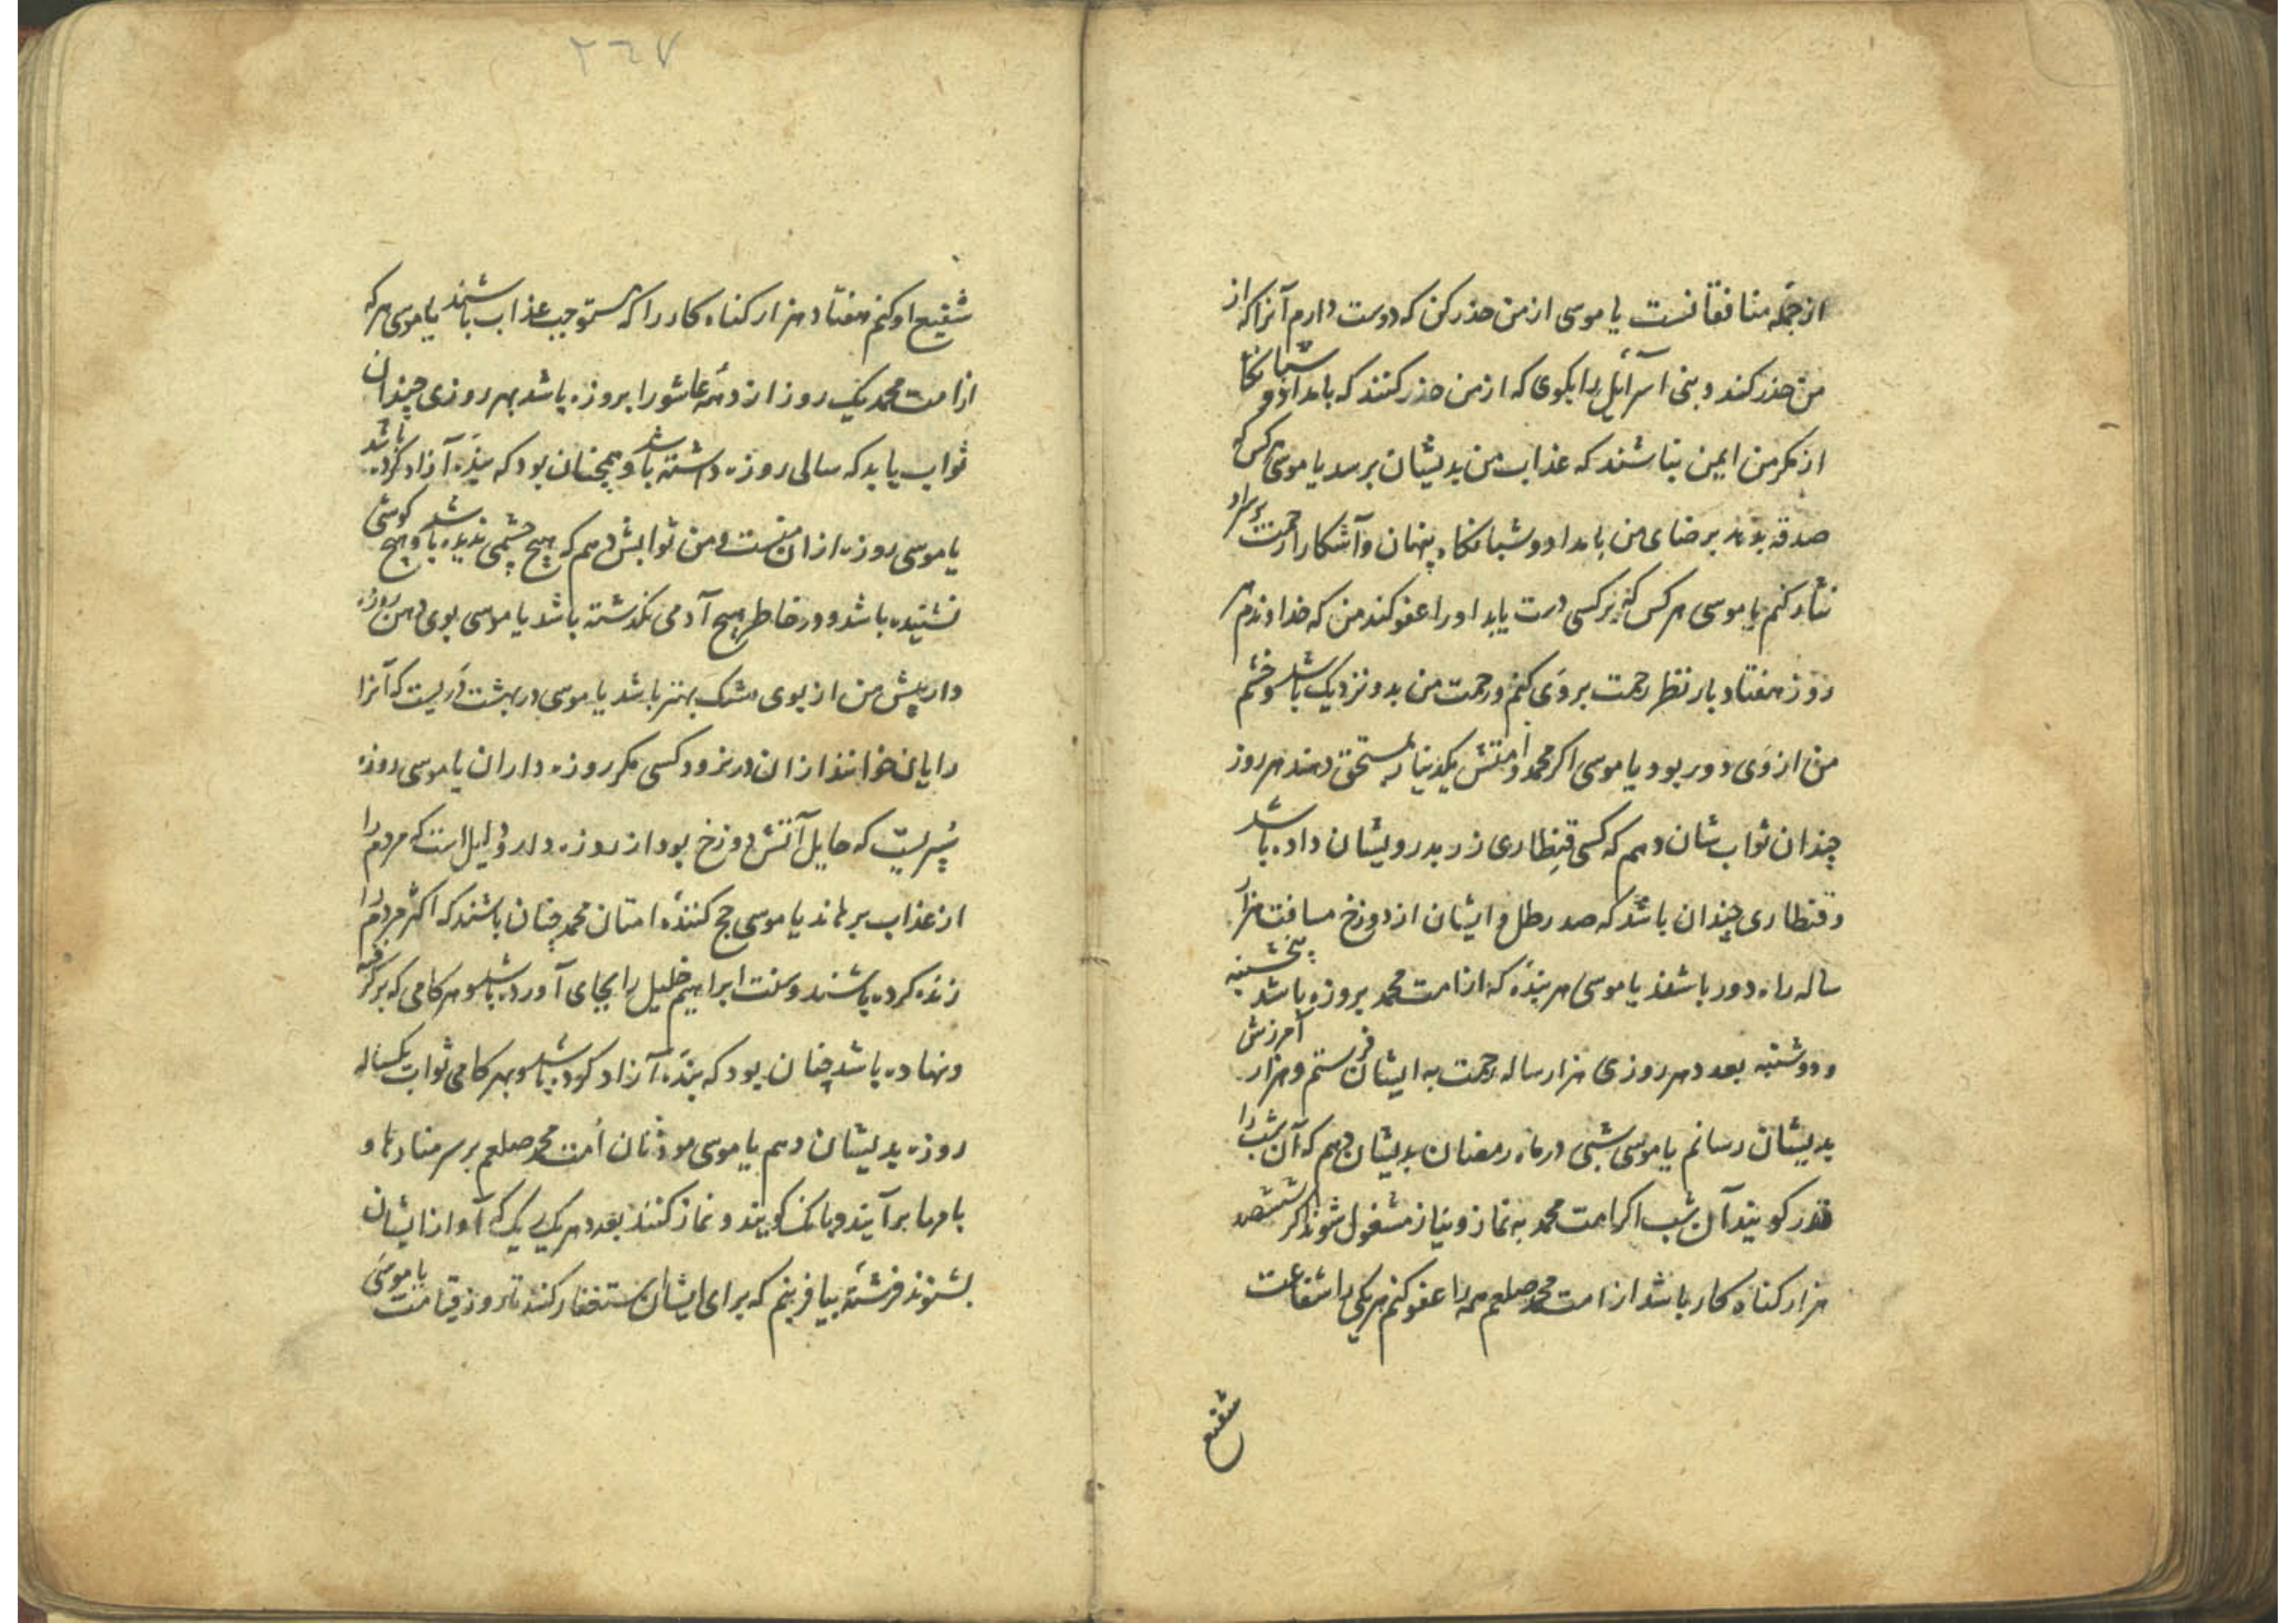 از جمله منافقانست یا موسی از من حذر کن که دوست دارم آنرا که از
من حذر کند و بنی اسرآئیل را بکوی که از من حذر کنند که بامداد و شبانکاه
از مکر من ایمن نباشند که عذاب من بدیشان برسد یا موسی هر کس که
صدقه بدهد برضای من بامداد و شبانکاه پنهان و آشکارا رحمت بر سر او
نثار کنم یا موسی هر کس که بر کسی دست یابد او را عفو کند من که خداوندم هر
روز هفتاد بار نظر رحمت بروی کنم و رحمت من بدو نزدیک باشد و خشم
من از وی دور بود یا موسی اکر محمد و امتش یکدینار بمستحق دهند هر روز
چندان ثواب شان دهم که کسی قنطاری زر بدرویشان داده باشد
و قنطاری چندان باشد که صد رطل و ایشان از دوزخ مسافت هزار
ساله راه دور باشند یا موسی هر بندهٔ که از امت محمد بروزه باشد پنجشنبه
و دوشنبه بعدد هر روزی هزار ساله رحمت به ایشان فرستم و هزار آمرزش
بدیشان رسانم یا موسی شبی در ماه رمضان بدیشان دهم که آن شب را
قدر کویند آن شب اکر امت محمد به نماز و نیاز مشغول شوند اکر ششصد
هزار کناه کار باشد از امت محمد صلعم همه را عفو کنم هر یکی را شفاعت
شفیع
۲۶۷
شفیع او کنم هفتاد هزار کناه کار را که مستوجب عذاب باشند یا موسی هر که
از امت محمد یک روز از دههٔ عاشورا بروزه باشد بهر روزی چندان
ثواب یابد که سالی روزه داشته باشد و همچنان بود که بندهٔ آزاد کرده باشد
یا موسی روزه از ان منست و من ثوابش دهم که هیچ چشمی ندیده باشد و هیچ کوشی
نشنیده باشد و در خاطر هیچ آدمی نکذشته باشد یا موسی بوی دهن روزه
دار پیش من از بوی مشک بهتر باشد یا موسی در بهشت دریست که آنرا
رایان خوانند از ان در نرود کسی مکر روزه داران یا موسی روزه
سپریست که حایل آتش دوزخ بود از روزه دار و دلیل است که مردم را
از عذاب برهاند یا موسی حج کنندهٔ امتان محمد چنان باشند که اکثر مردم را
زنده کرده باشند و سنت ابراهیم خلیل را بجای آورده باشد و هر کامی که برکرفته
و نهاده باشد چنان بود که بندهٔ آزاد کرده باشد و بهر کامی ثواب یکساله
روزه بدیشان دهم یا موسی موذنان امت محمد صلعم بر سر منارها و
بامها برآیند و بانک کویند و نماز کنند بعدد هر یک یک که آواز ایشان
بشنوند فرشتهٔ بیافرینم که برای ایشان استغفار کنند تا روز قیامت یا موسی